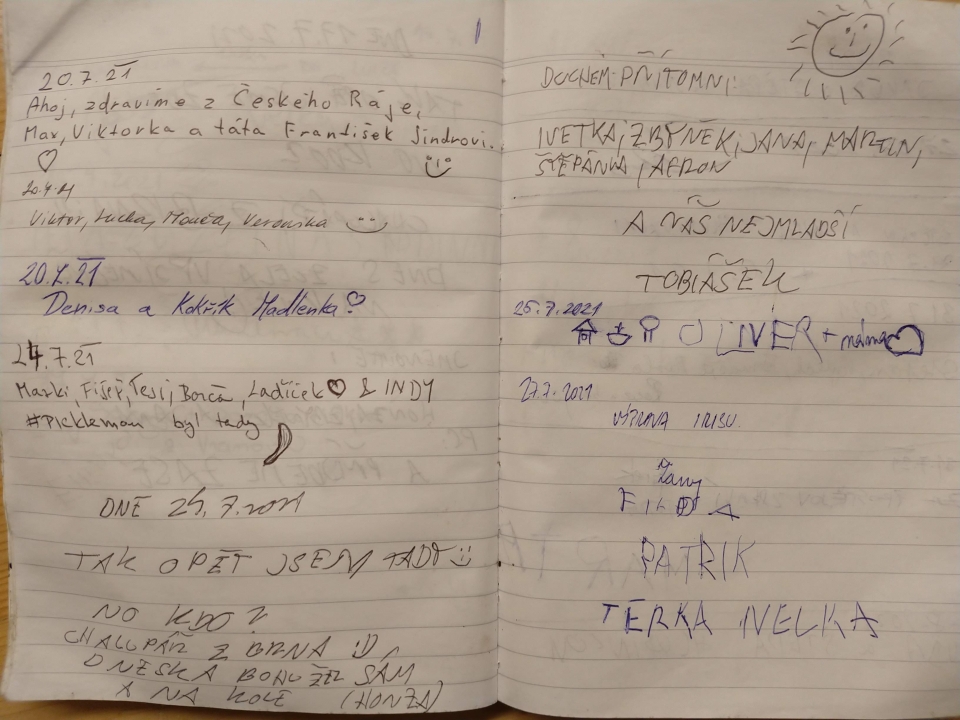 20.7.21
Ahoj, zdravíme z Českého Ráje,
Max, Viktorka a táta František Šindrovi.
20.7.21
Viktor, Lucka, Monča, Veronika
20.7.21
Denisa a Kokřík Madlenka
24.7.21
Marki, Fišeř, Tesi, Borča, Ladíček & INDY
#Pickleman byl tady
DNE 25.7.2021
TAK OPĚT JSEM TADY
NO KDO?
CHALUPÁŘ Z BRNA :D
DNESKA BOHUŽEL SÁM
X NA KOLE (HONZA)
DUCHEM PŘÍTOMNI:
IVETKA, ZBYNĚK, JANA, MARTIN,
ŠTĚPÁNKA, AERON
A NÁŠ NEJMLADŠÍ
TOBIÁŠEK
25.7.2021
OLIVER + máma
27.7.2021
VÝPRAVA IRISU
FILDA
PATRIK
TERKA IVELKA